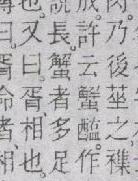 肉乃後莝之襍
成許云蟹醢作
說長蟹者多足
也又曰胥相也
曰胥命者相